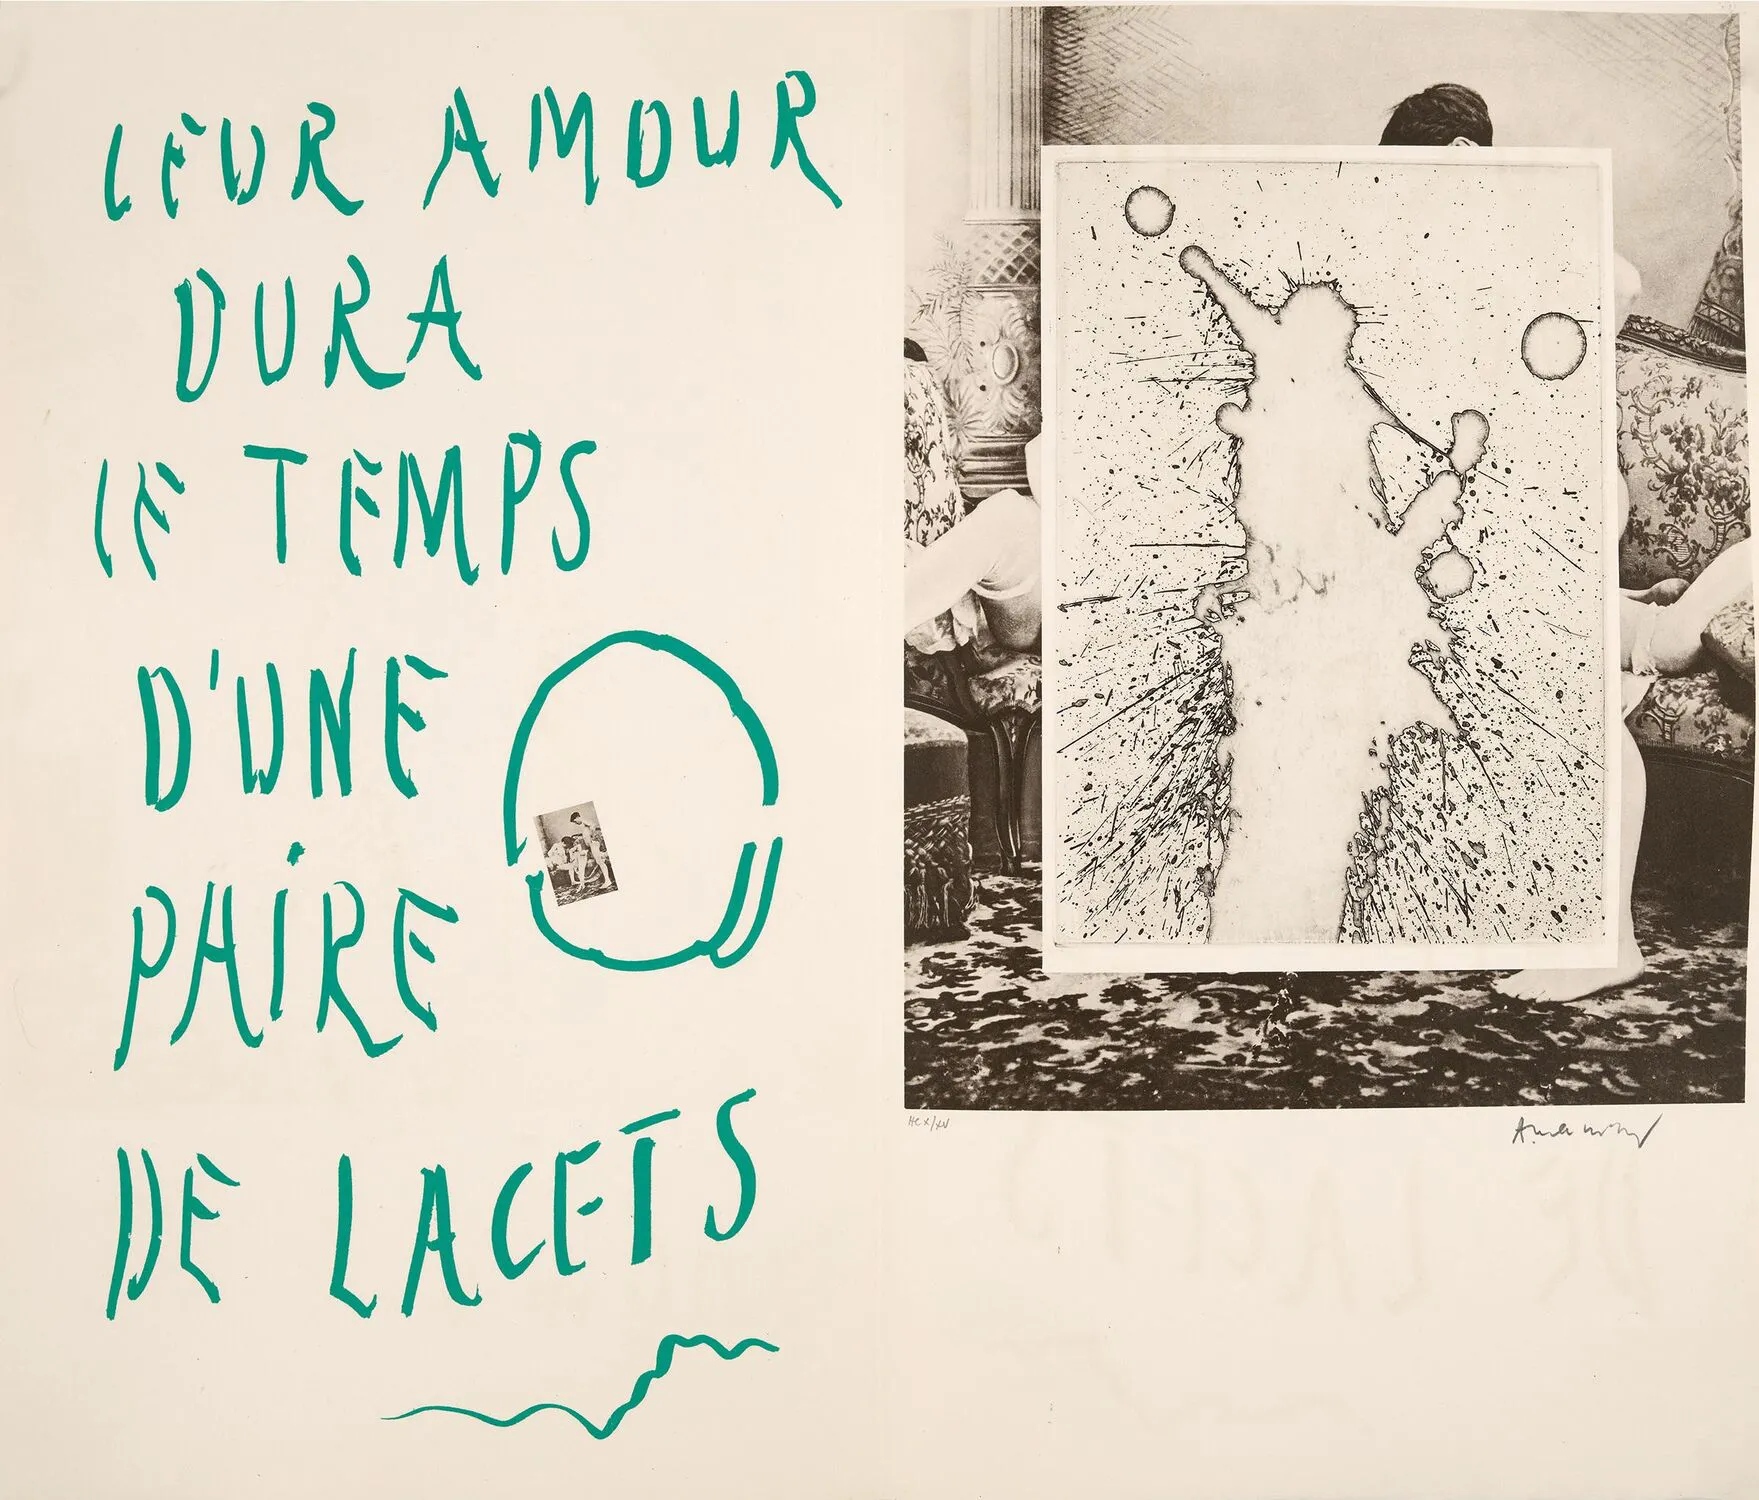 LEUR AMOUR
DURA
LE TEMPS
D'UNE
PAiRE
DE LACETS
HC X/XV